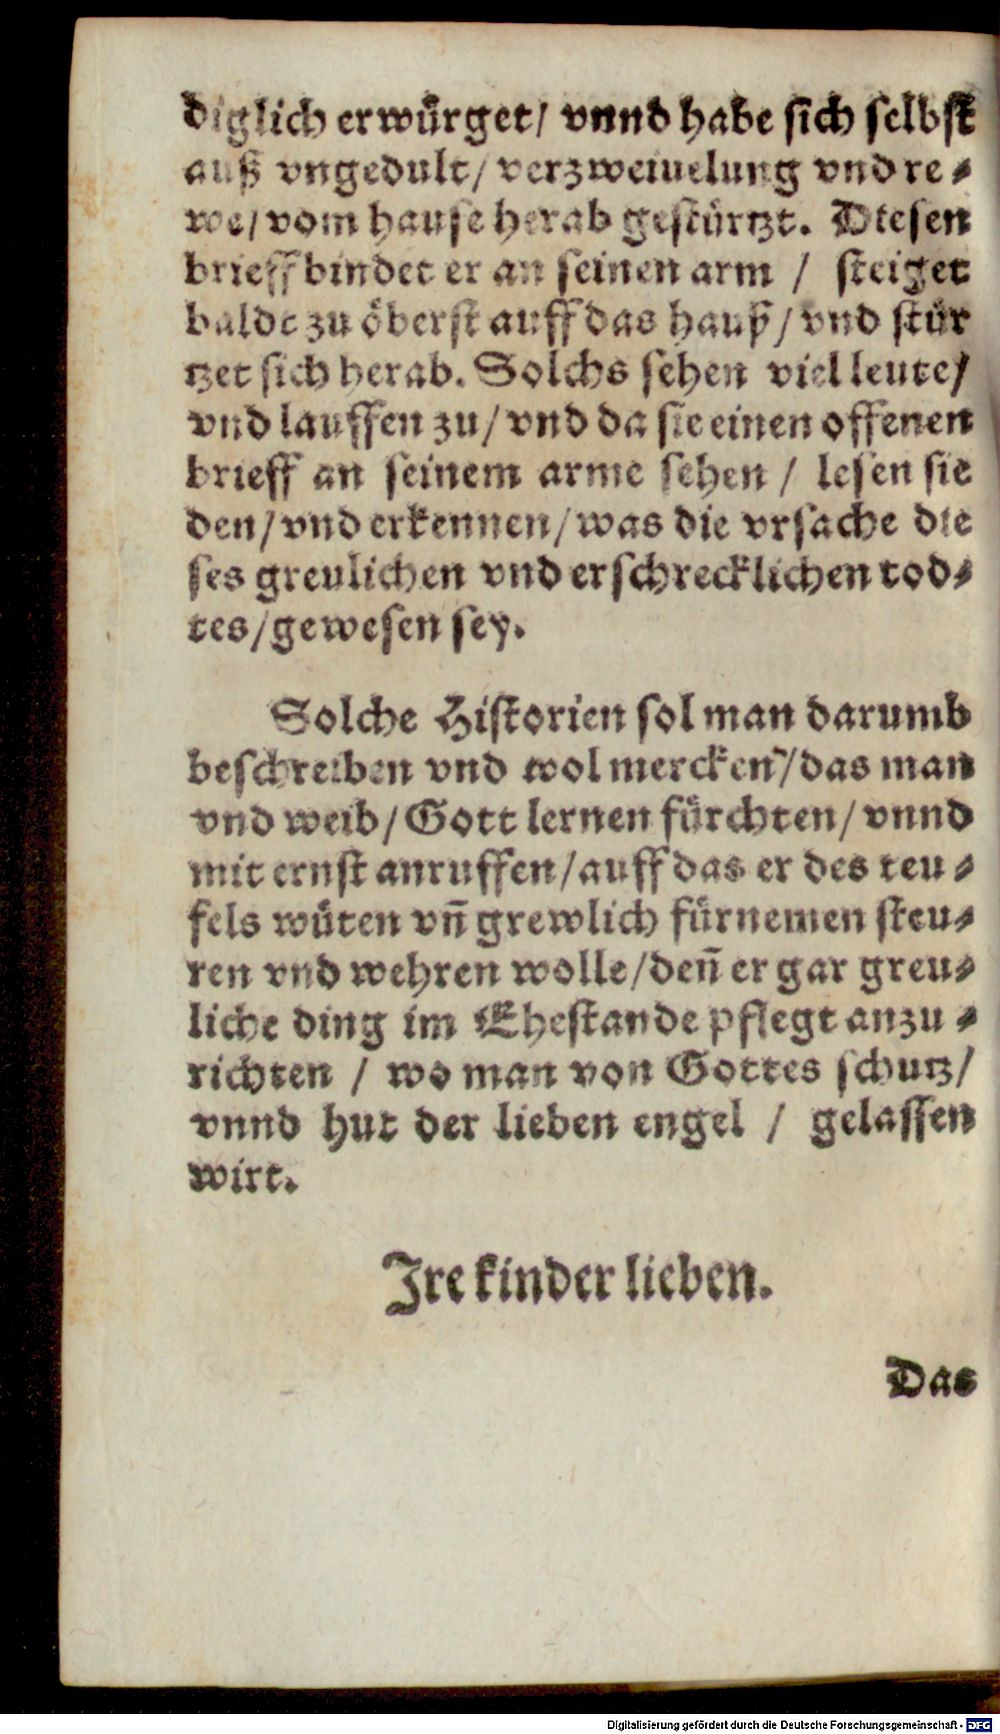 diglich erwürget/ vnnd habe sich selbst
auß vngedult/ verzweiuelung vnd re⸗
we/ vom hause herab gestürtzt. Diesen
brieff bindet er an seinen arm / steiget
balde zu öberst auff das hauß/ vnd stür
tzet sich herab. Solchs sehen viel leute/
vnd lauffen zu/ vnd da sie einen offenen
brieff an seinem arme sehen / lesen sie
den/ vnd erkennen/ was die vrsache die
ses greulichen vnd erschrecklichen tod⸗
tes/ gewesen sey.
Solche Historien sol man darumb
beschreiben vnd wol mercken/ das man
vnd weib/ Gott lernen fürchten/ vnnd
mit ernst anruffen/ auff das er des teu⸗
fels wüten vñ grewlich fürnemen steu⸗
ren vnd wehren wolle/ deñ er gar greu⸗
liche ding im Ehestande pflegt anzu⸗
richten / wo man von Gottes schutz/
vnnd hut der lieben engel / gelassen
wirt.
Jre kinder lieben.
Das
Digitalisierung gefördert durch die Deutsche Forschungsgemeinschaft - DFG